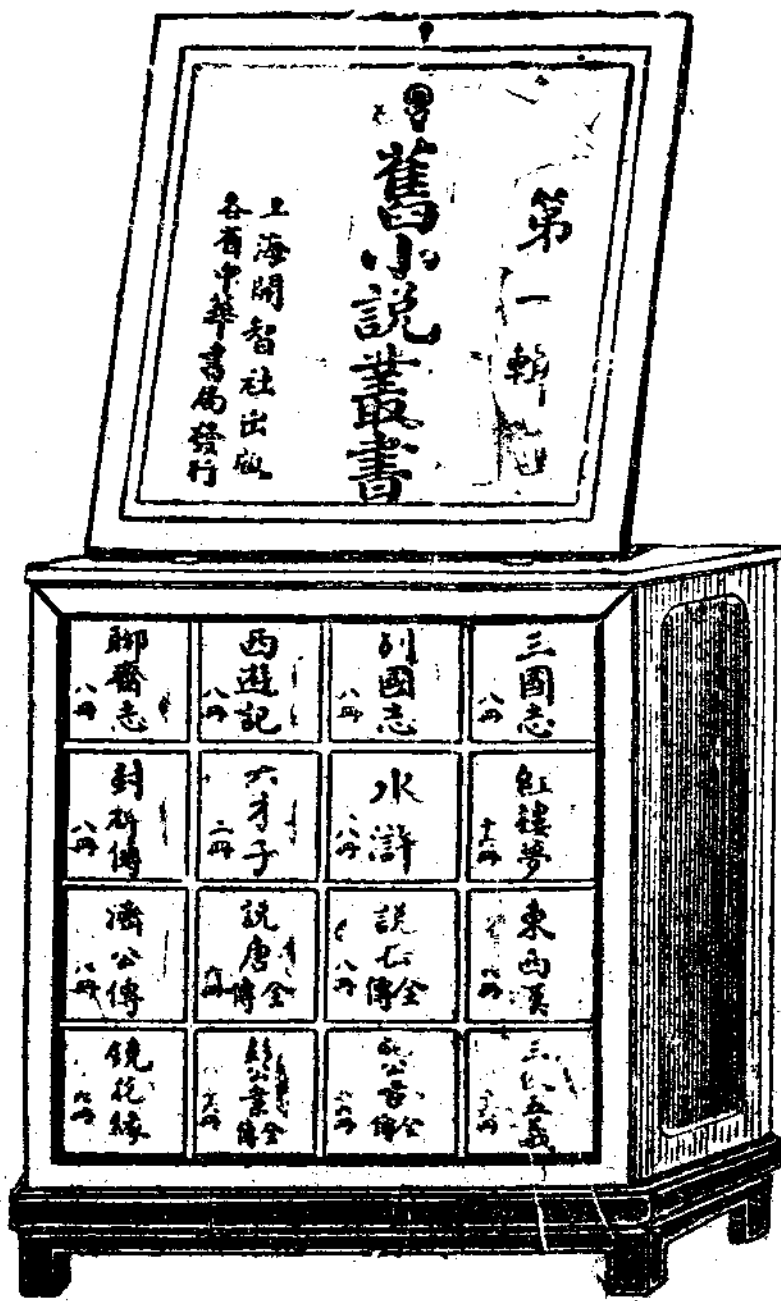 第一輯
舊小說叢書
上海開智社出版
各省中華書局發行
三國志
八冊
列國志
八冊
西遊記
八冊
聊齋志
八冊
紅樓夢
十二冊
水滸
八冊
六才子
二冊
封神傳
八冊
東西漢
說岳全傳
八冊
說唐全傳
濟公傳
八冊
三俠五義
施公案全傳
彭公案全傳
鏡花緣
六冊